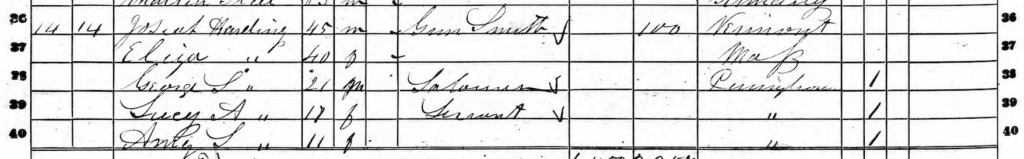 36 14 14 Josiah Harding 45 m Gun Smith 100 Vermont 36
37 Eliza " 40 f Mass 37
38 George S " 21 m Salesman 38 1
39 Lucy A " 17 f Servant " 1 39
40 Amy S " 11 f " 1 40